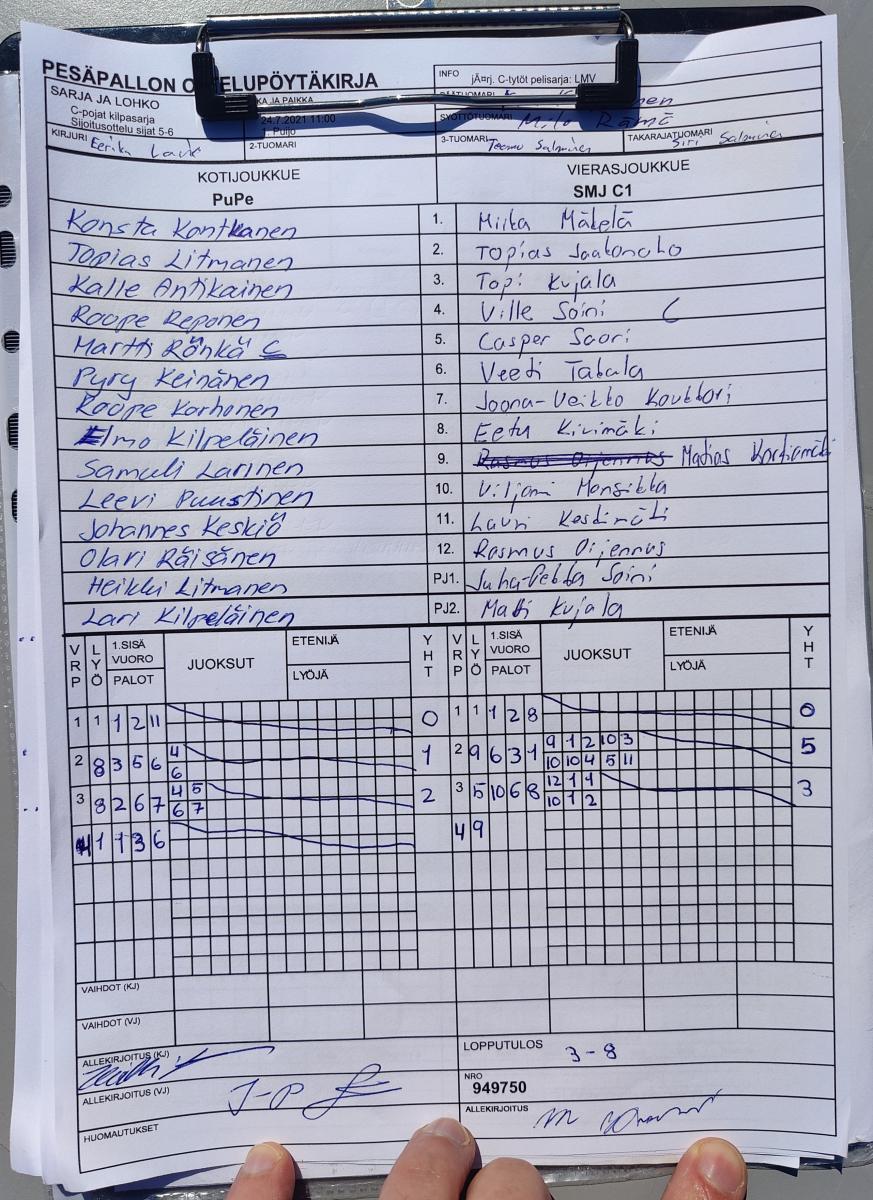 PESÄPALLON O ELUPÖYTÄKIRJA
INFO jÃ¤rj. C-tytöt pelisarja: LMV
SARJA JA LOHKO
C-pojat kilpasarja
Sijoitusottelu sijat 5-6
KA JA PAIKKA
24.7.2021 11:00
1. Puijo
SYÖTTÖTUOMARI Milo Rämä
KIRJURI Eerika
2-TUOMARI
3-TUOMARI Teemu Salminen
TAKARAJATUOMARI Siri Salminen
KOTIJOUKKUE
PuPe
VIERASJOUKKUE
SMJ C1
Konsta Kontkanen 1. Miika Mäkelä
Topias Litmanen 2. Topias Jaakonaho
Kalle Antikainen 3. Topi Kujala
Roope Reponen 4. Ville Soini C
Martti Rönkä C 5. Casper Saari
Pyry Keinänen 6. Veeti Takala
Roope Korhonen 7. Joona-Veikko
Elmo Kilpeläinen 8. Eetu Kivimäki
Samuli Larinen 9. Rasmus Oijennus Matias
Leevi Puustinen 10. Viljami Mansikka
Johannes Keskiö 11. Lauri Keskimäki
Olavi Räisänen 12. Rasmus Oijennus
Heikki Litmanen PJ1. Juha-Pekka Soini
Lari Kilpeläinen PJ2. Matti Kujala
VRP LYÖ 1.SISÄ VUORO PALOT JUOKSUT ETENIJÄ LYÖJÄ YHT VRP LYÖ 1.SISÄ VUORO PALOT JUOKSUT ETENIJÄ LYÖJÄ YHT
1 1 1 2 11 0 1 1 1 2 8 0
4 9 1 2 10 3
2 8 3 5 6 1 2 9 6 3 1 5
6 10 10 4 5 11
4 5 12 1 9
3 8 2 6 7 2 3 5 10 6 8 3
6 7 10 1 2
4 1 1 3 6 4 9
VAIHDOT (KJ)
VAIHDOT (VJ)
ALLEKIRJOITUS (KJ)
LOPPUTULOS 3-8
ALLEKIRJOITUS (VJ) J-P
NRO
949750
HUOMAUTUKSET
ALLEKIRJOITUS